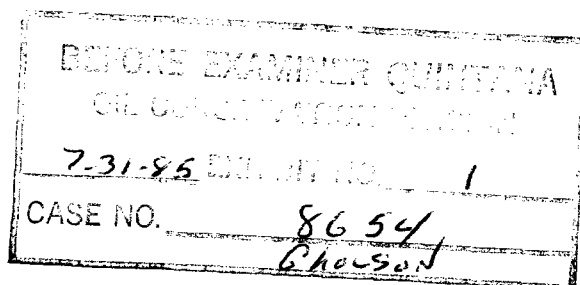 BEFORE EXAMINER QUINTANA
OIL CONSERVATION DIVISION
7-31-85 EXHIBIT NO. 1
CASE NO. 8654
Gholson